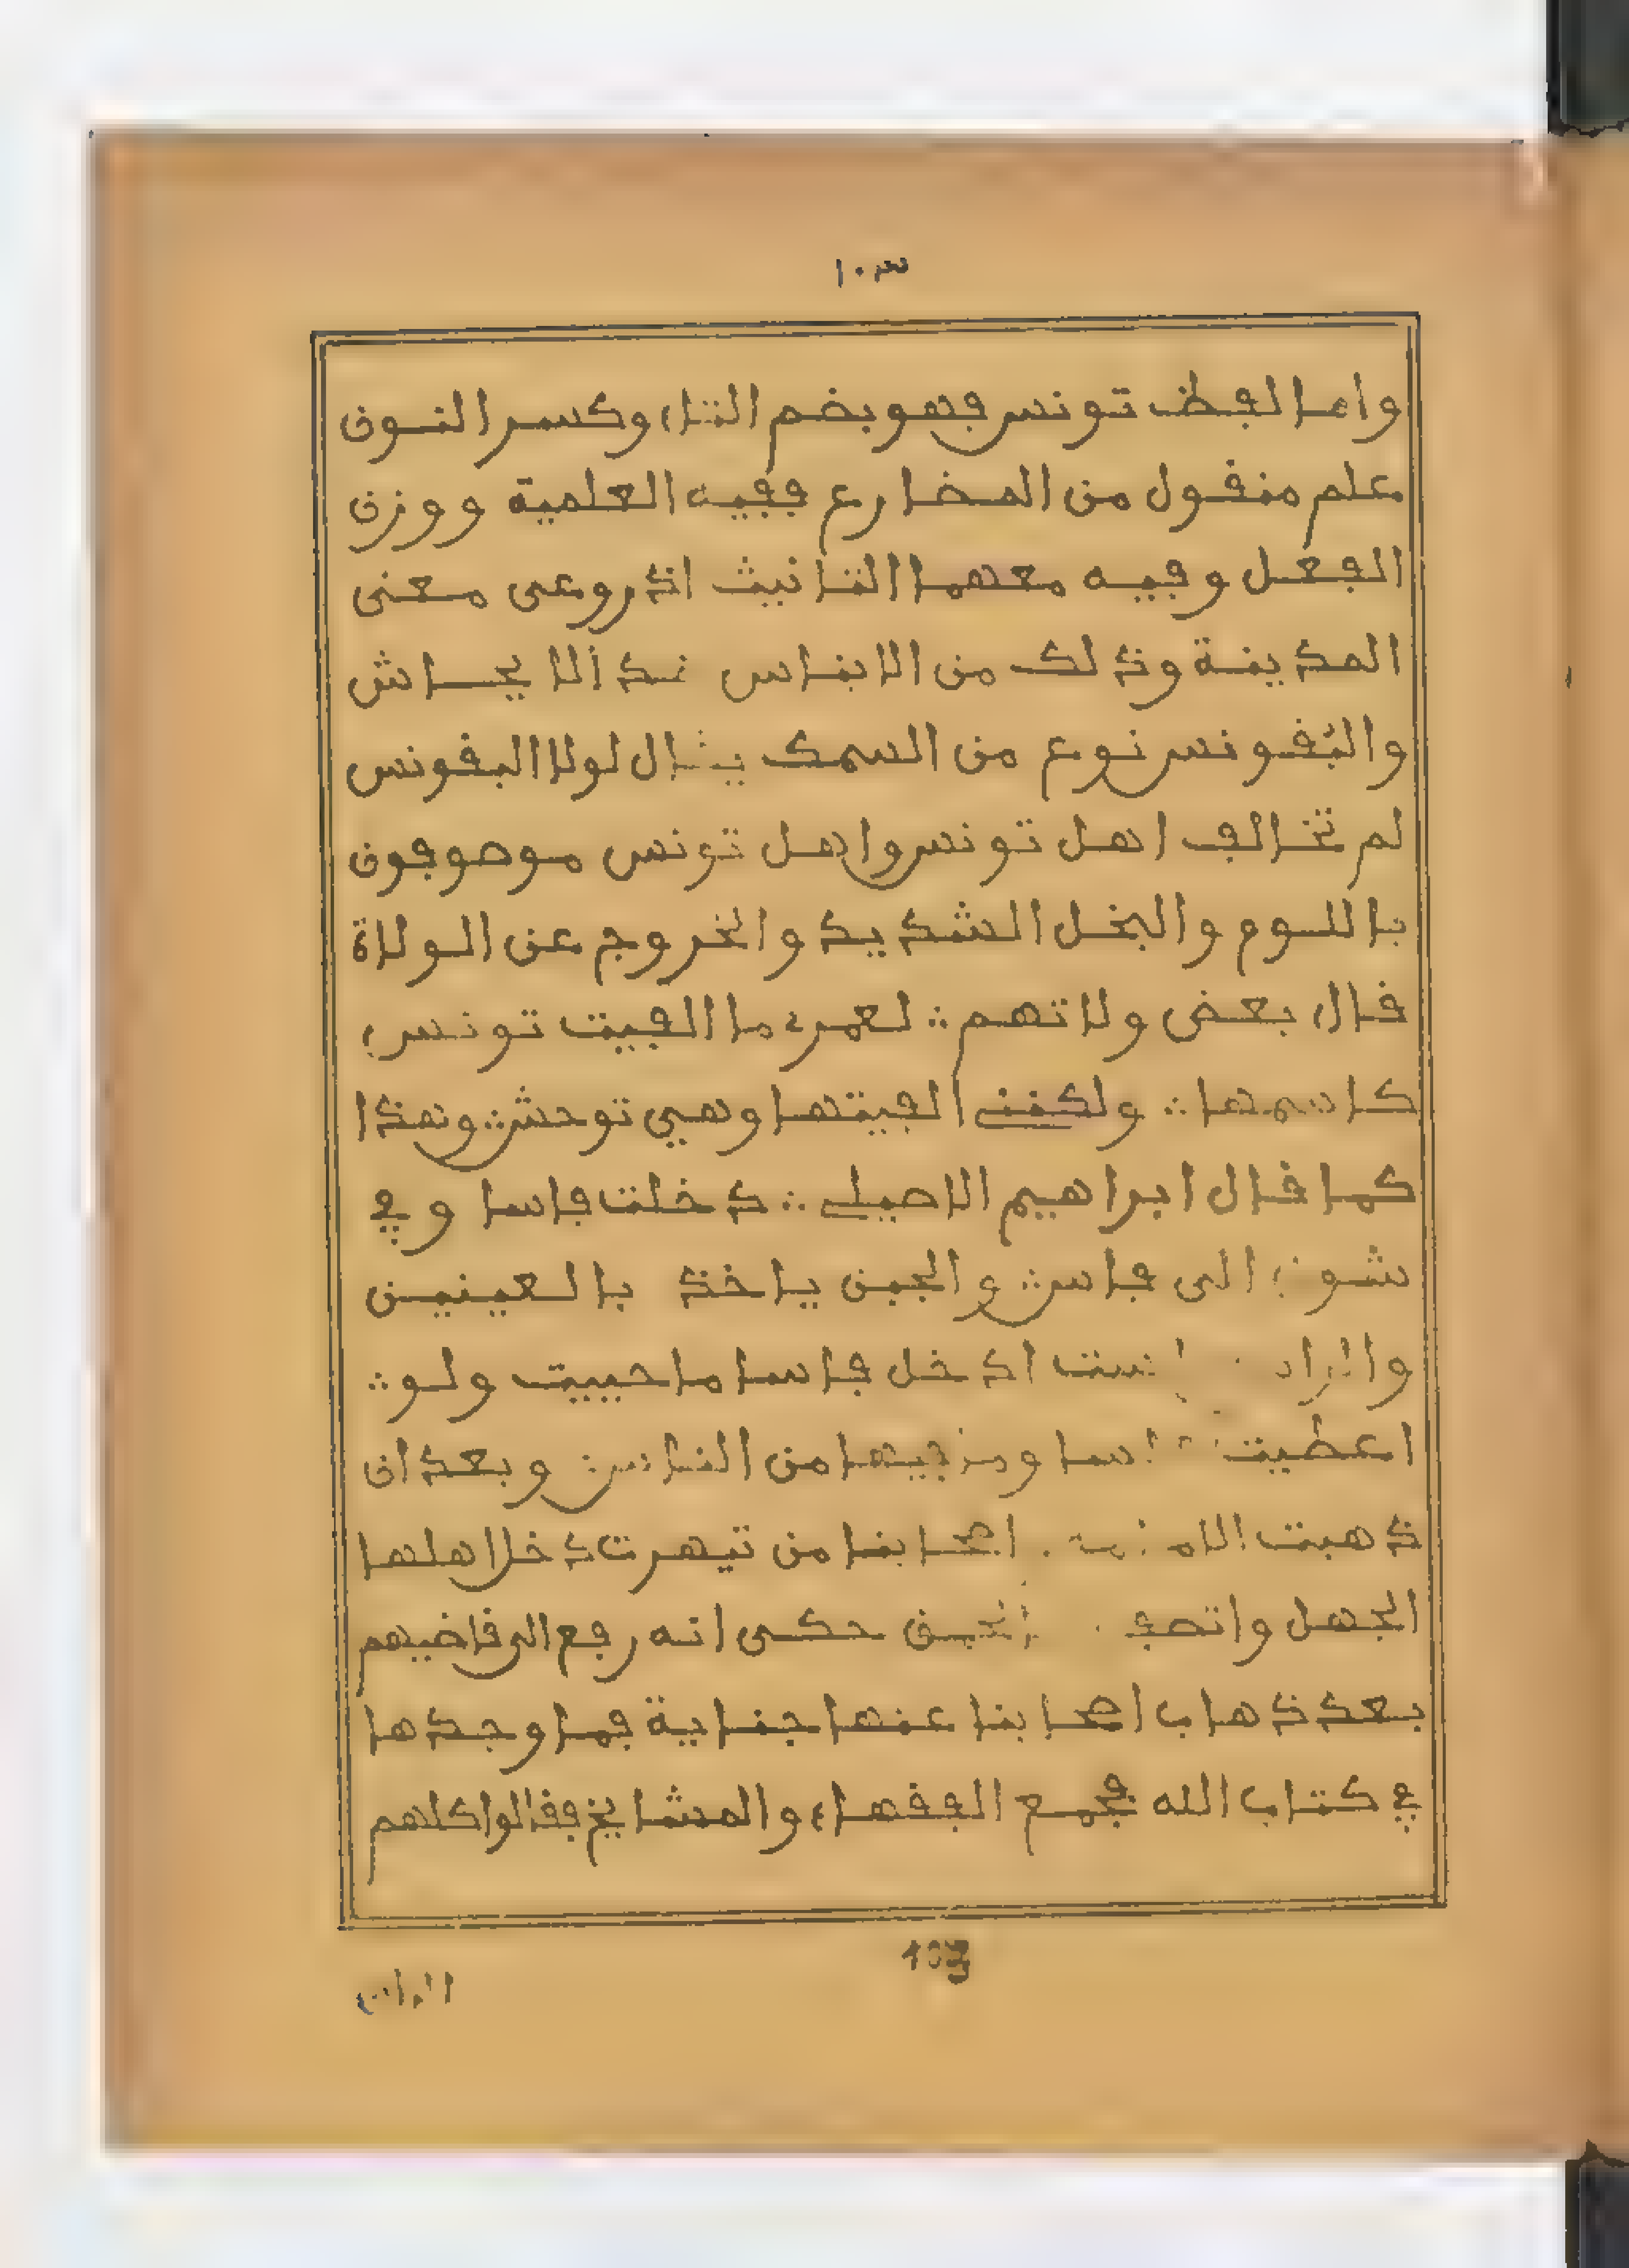 ١٠٣
واما لفظ تونس فهو بضم التاء وكسر النون
علم منقول من المضارع ففيه العلمية ووزن
الفعل وفيه معهما التانيث اذ روعى معنى
المدينة وذلك من الايناس ضد الايحاش
والبقونس نوع من السمك يقال لولا البقونس
لم تخالف اهل تونس واهل تونس موصوفون
باللوم والبخل الشديد والخروج عن الولاة
قال بعض ولاتهم ∴ لعمرك ما الفيت تونس
كاسمها ∴ ولكننى الفيتها وهي توحش ∴ وهذا
كما قال ابراهيم الاصيلى ∴ دخلت فاسا وفي
شوق الى فاس ∴ والجبن ياخذ بالعينين
والراس ∴ لست ادخل فاسا ما حييت ولو ∴
اعطيت فاسا ومن فيها من الناس ∴ وبعد ان
ذهبت اصحابنا من تيهرت دخل اهلها
الجهل حكى انه رفع الى قاضيهم
بعد ذهاب اصحابنا عنها جناية فما وجدها
في كتاب الله فجمع الفقهاء والمشايخ فقالوا كلهم
103